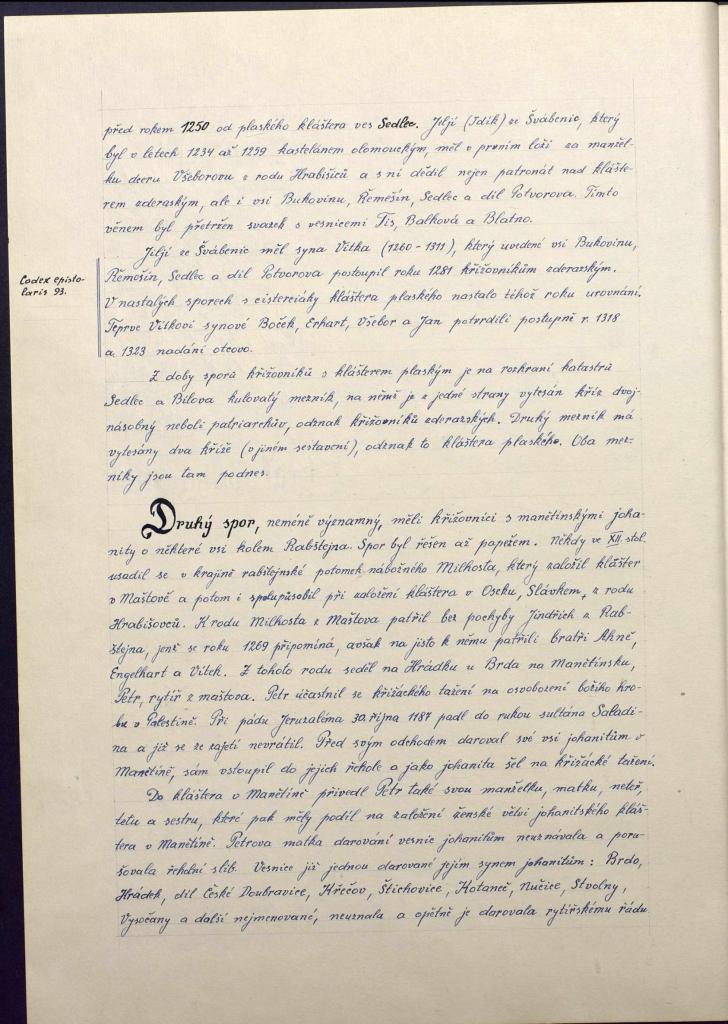 před rokem 1250 od plaského kláštera ves Sedlec. Jiljí (Idík) ze Švábenic, který
byl v letech 1234 až 1259 kastelánem olomouckým, měl v prvním loži za manžel-
ku dceru Všeborovu z rodu Hrabišiců a s ní dědil nejen patronát nad klášte-
rem zderazským, ale i vsi Bukovinu, Řemešín, Sedlec a díl Potvorova. Tímto
věnem byl přetržen svazek s vesnicemi Tis, Balková a Blatno.
Jiljí ze Švábenic měl syna Vítka (1260-1311), který uvedené vsi Bukovinu,
Codex episto-
laris 93.
Řemešín, Sedlec a díl Potvorova postoupil roku 1281 křižovníkům zderazským.
V nastalých sporech s cisterciáky kláštera plaského nastalo téhož roku urovnání.
Teprve Vítkovi synové Boček, Erhart, Všebor a Jan potvrdili postupně r. 1318
a 1323 nadání otcovo.
Z doby sporů křižovníků s klášterem plaským je na rozhraní katastrů
Sedlec a Bílova kulovatý mezník, na němž je z jedné strany vytesán kříž dvoj-
násobný neboli patriarchův, odznak křižovníků zderazských. Druhý mezník má
vytesány dva kříže (v jiném sestavení), odznak to kláštera plaského. Oba mez-
níky jsou tam podnes.
Druhý spor, neméně významný, měli křižovníci s manětínskými joha-
nity o některé vsi kolem Rabštejna. Spor byl řešen až papežem. Někdy ve XII. stol.
usadil se v krajině rabštejnské potomek nábožného Milhosta, který založil klášter
v Maštově a potom i spolupůsobil při založení kláštera v Oseku, Slávkem, z rodu
Hrabišovců. K rodu Milhosta z Maštova patřil bez pochyby Jindřich z Rab-
štejna, jenž se roku 1269 připomíná, avšak na jisto k němu patřili bratři Ahně,
Engelhart a Vítek. Z tohoto rodu seděl na Hrádku u Brda na Manětínsku,
Petr, rytíř z maštova. Petr účastnil se křižáckého tažení na osvobození božího hro-
bu v Palestině. Při pádu Jeruzaléma 30. října 1187 padl do rukou sultána Saladi-
na a již se ze zajetí nevrátil. Před svým odchodem daroval své vsi johanitům v
Manětíně, sám vstoupil do jejich řehole a jako johanita šel na křižácké tažení.
Do kláštera v Manětíně přivedl Petr také svou manželku, matku, neteř,
tetu a sestru, které pak měly podíl na založení ženské větvi johanitského kláš-
tera v Manětíně. Petrova matka darování vesnic johanitům neuznávala a poru-
šovala řeholní slib. Vesnice již jednou darované jejím synem johanitům: Brdo,
Hrádek, díl České Doubravice, Křečov, Štichovice, Kotaneč, Nučice, Stvolny,
Vysočany a další nejmenované, neuznala a opětně je darovala rytířskému řádu